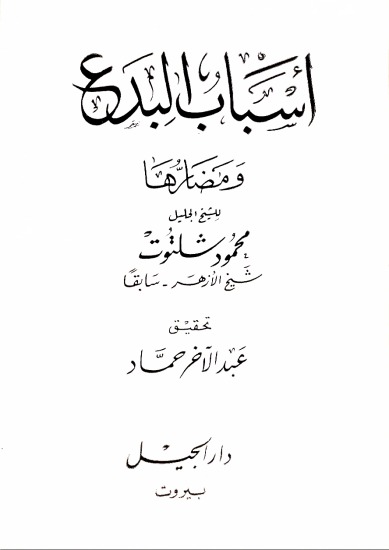 أسباب البدع
ومضارها
للشيخ الجليل
محمود شلتوت
شيخ الأزهر - سابقًا
تحقيق
عبد الآخر حماد
دار الجيل
بيروت